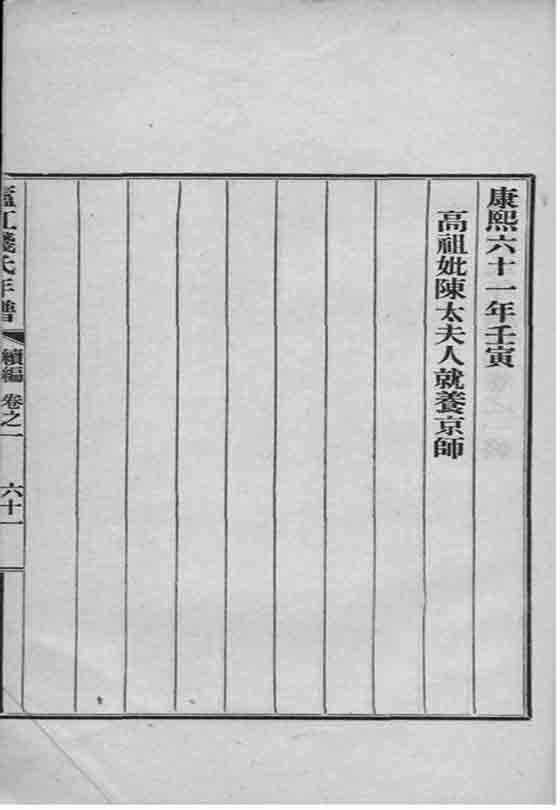 康熙六十一年壬寅
高祖妣陳太夫人就養京師
廬江錢氏年譜
續編 卷之一
六十一